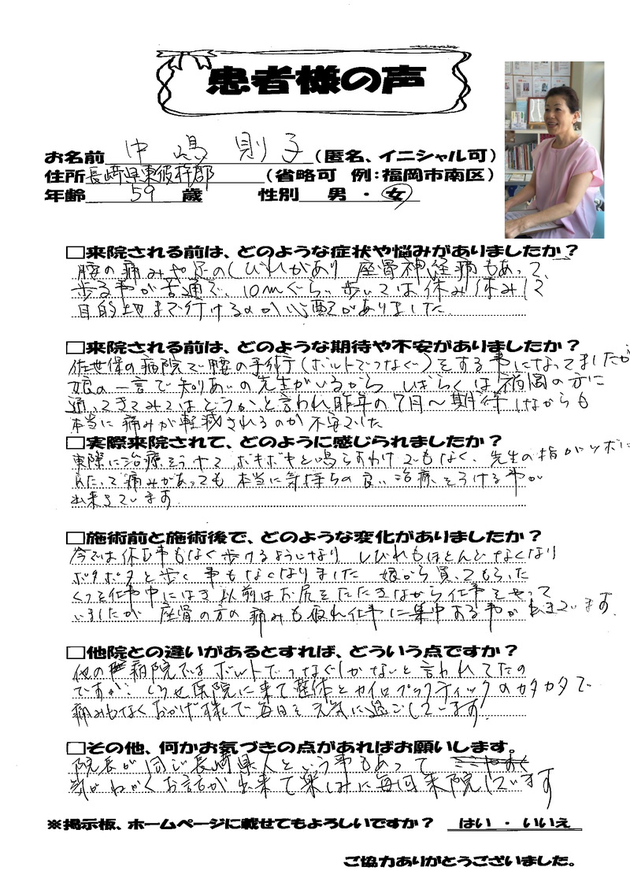 患者様の声
お名前 中嶋 則子 (匿名、イニシャル可)
住所 長崎県東彼杵郡 (省略可 例:福岡市南区)
年齢 59 歳 性別 男・女
□来院される前は、どのような症状や悩みがありましたか?
腰の痛みや足のしびれがあり 座骨神経痛もあって、
歩る事が苦通で、10mぐらい歩いては休み休みして
目的地まで行けるのか心配がありました
□来院される前は、どのような期待や不安がありましたか?
佐世保の病院で腰の手術(ボルトでつなぐ)をする事になってましたが
娘の一言で知りあいの先生がいるから しばらくは福岡の方に
通ってきてみてはどうかと言われ昨年の7月〜期待しながらも
本当に痛みが軽減されるのか不安でした
□実際来院されて、どのように感じられましたか?
実際に治療をうけて ボキボキと鳴らすわけでもなく、先生の指がツボに
あたって痛みがあっても本当に気持ちの良い治療をうける事が
出来ています
□施術前と施術後で、どのような変化がありましたか?
今では休む事もなく歩けるようになり しびれもほとんどなくなり
ボタボタと歩く事もなくなりました 娘から買ってもらった
くつを仕事中にはき 以前はお尻をたたきながら仕事をやって
いましたが 座骨の方の痛みも取れ仕事に集中する事ができています
□他院との違いがあるとすれば、どういう点ですか?
他の病院ではボルトでつなぐしかないと言われてたの
ですが、くろせ保院に来て整体とカイロプラクティックのカタカタで
痛みもなくおかげ様で毎日を元気に過ごしています
□その他、何かお気づきの点があればお願いします。
院長が同じ長崎県人という事もあって
気がねなくお話が出来て楽しみに毎回来院しています
※掲示板、ホームページに載せてもよろしいですか? はい ・ いいえ
ご協力ありがとうございました。